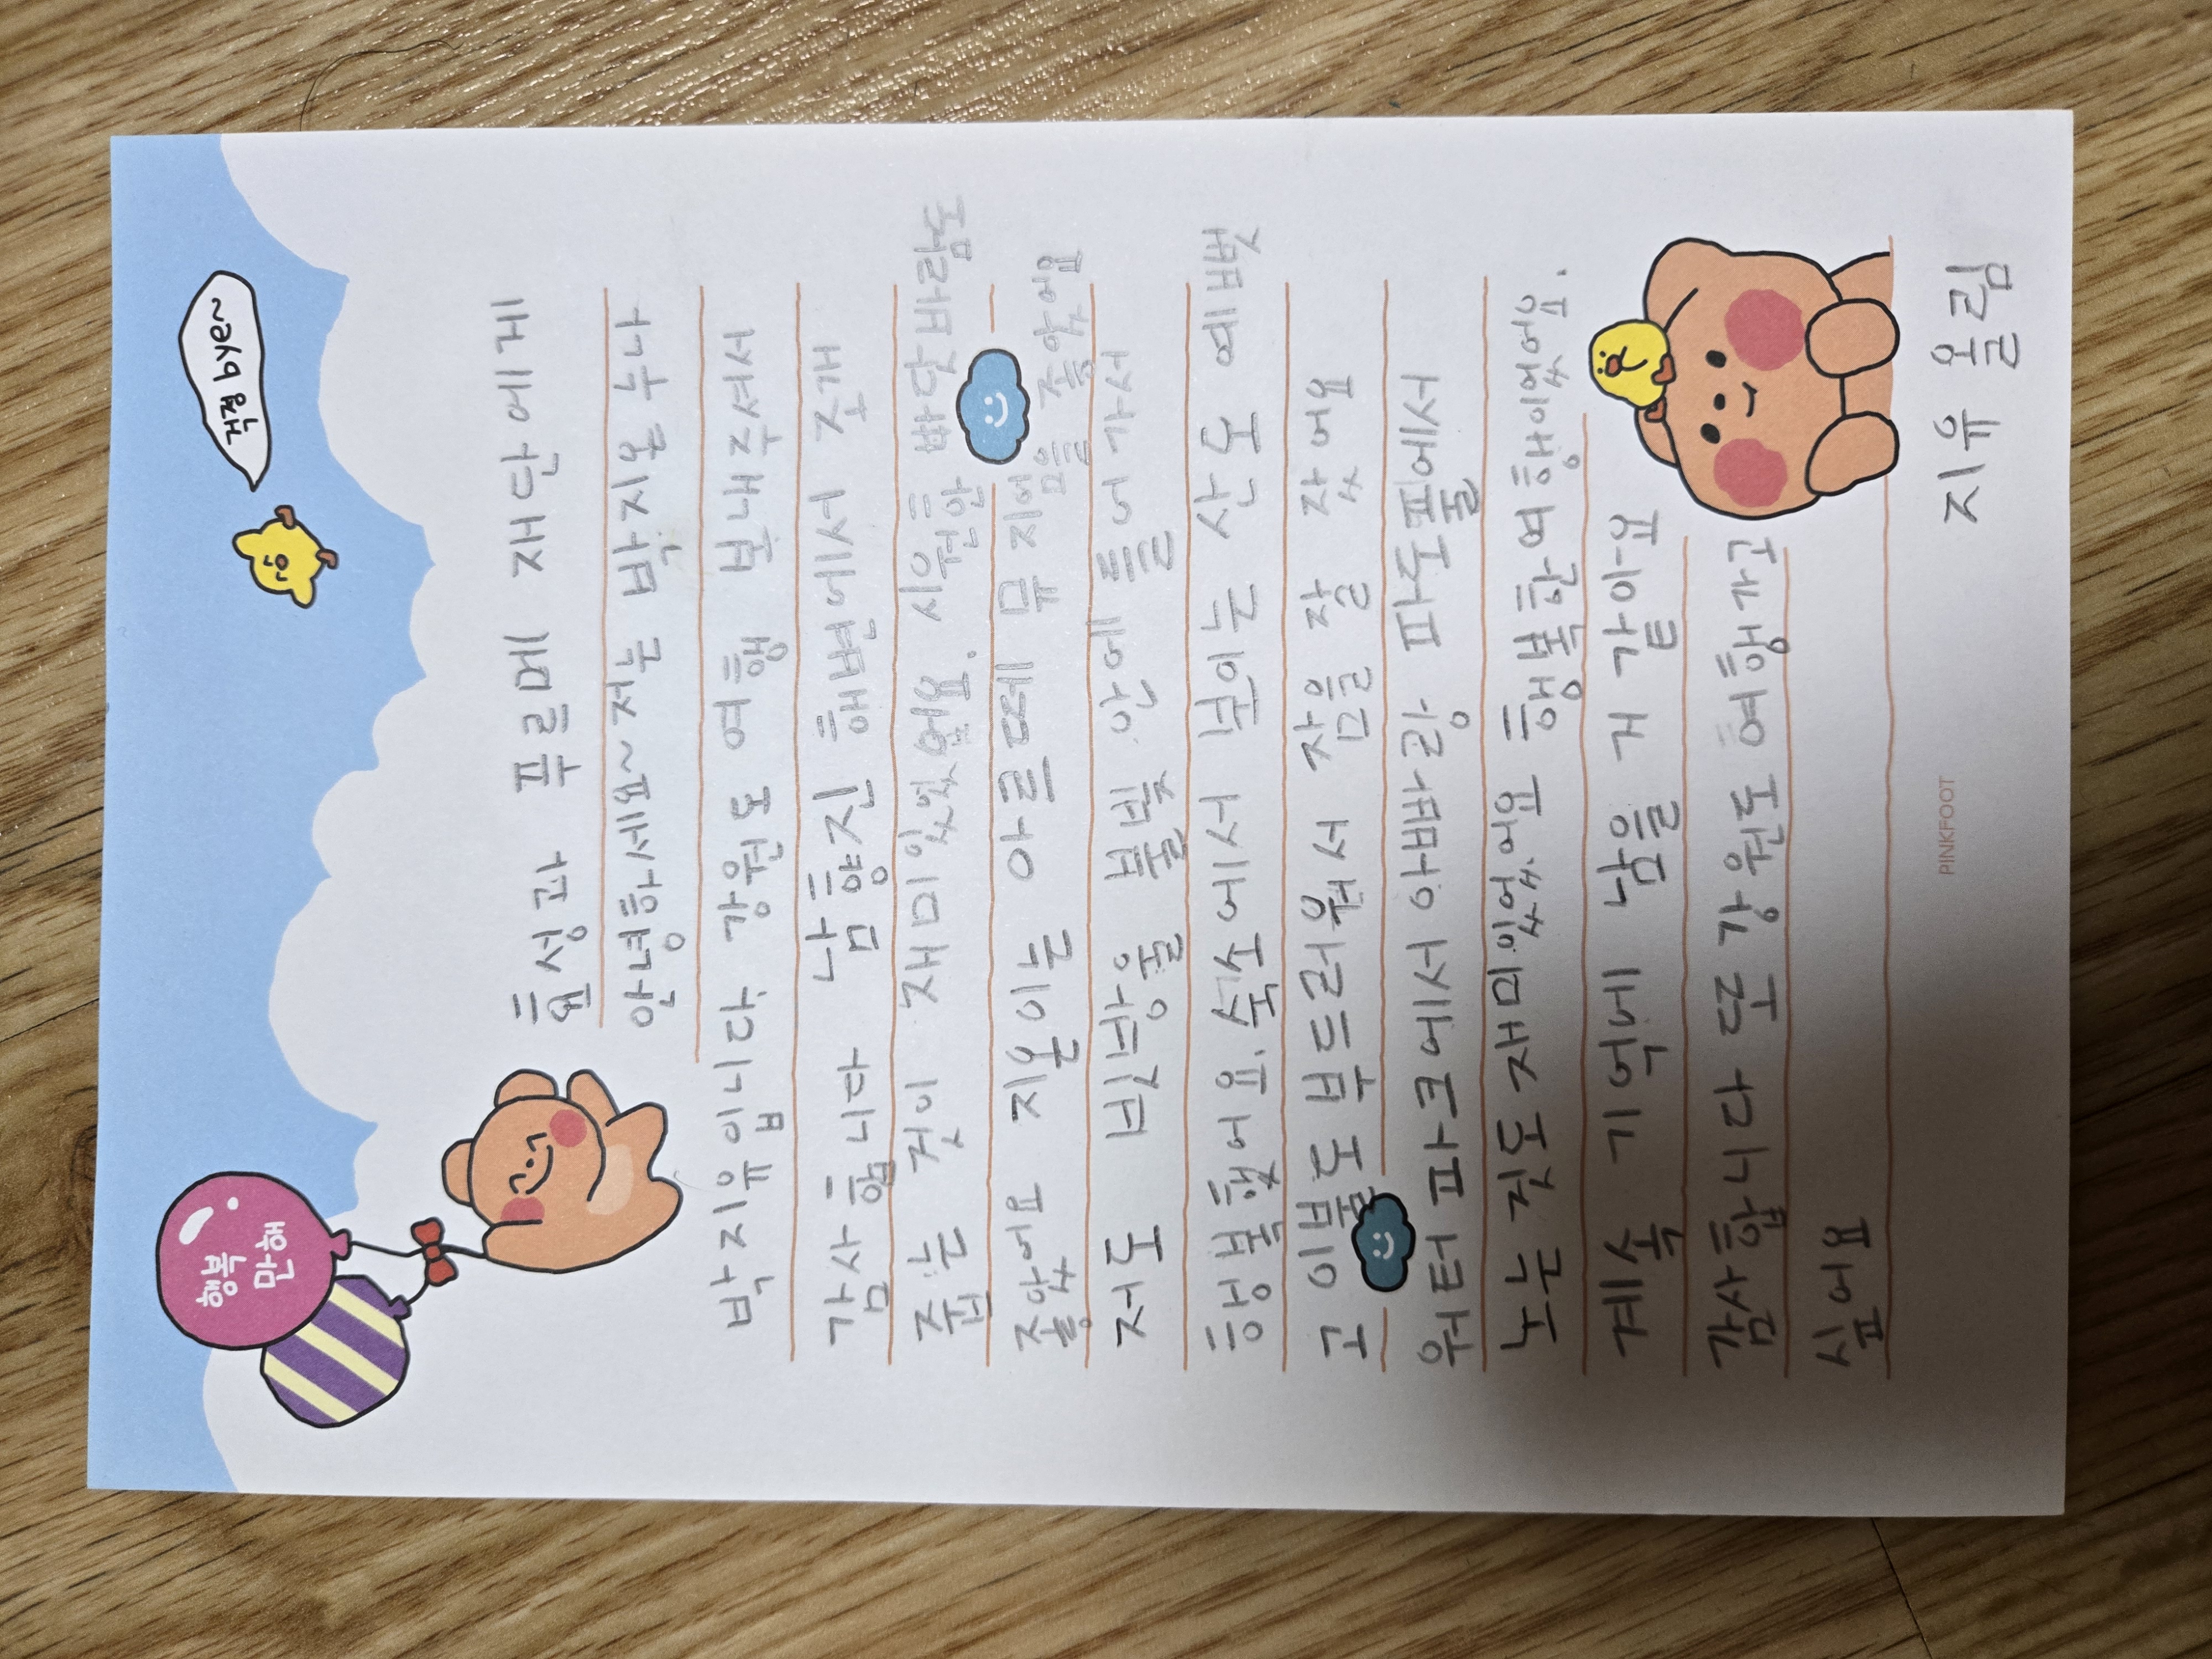 걱정 bye~
행복
만해
효성과 푸르메 재단에게
안녕하세요~ 저는 박지온 누나
박지유입니다. 강원도 여행 보내주셔서
감사합니다 남향진 해변에서 조개
줍는 것이 재미있었어요. 시원한 바닷바람도
좋았어요 지온이는 아르떼 뮤지엄을 좋았어요
저도 빗방울 불빛 안에 들어가서
행복했어요. 숙소에서 보이는 산도 예뻤
고 이불도 부드러워서 잠을 잘 잤어요
워터파크에서 아빠랑 파도풀에서
노는 것도 재미있었어요 행복한 여행이었어요.
계속 기억에 남을 거 같아요
감사합니다 또 강원도 여행가고
싶어요
지유 올림
PINKFOOT